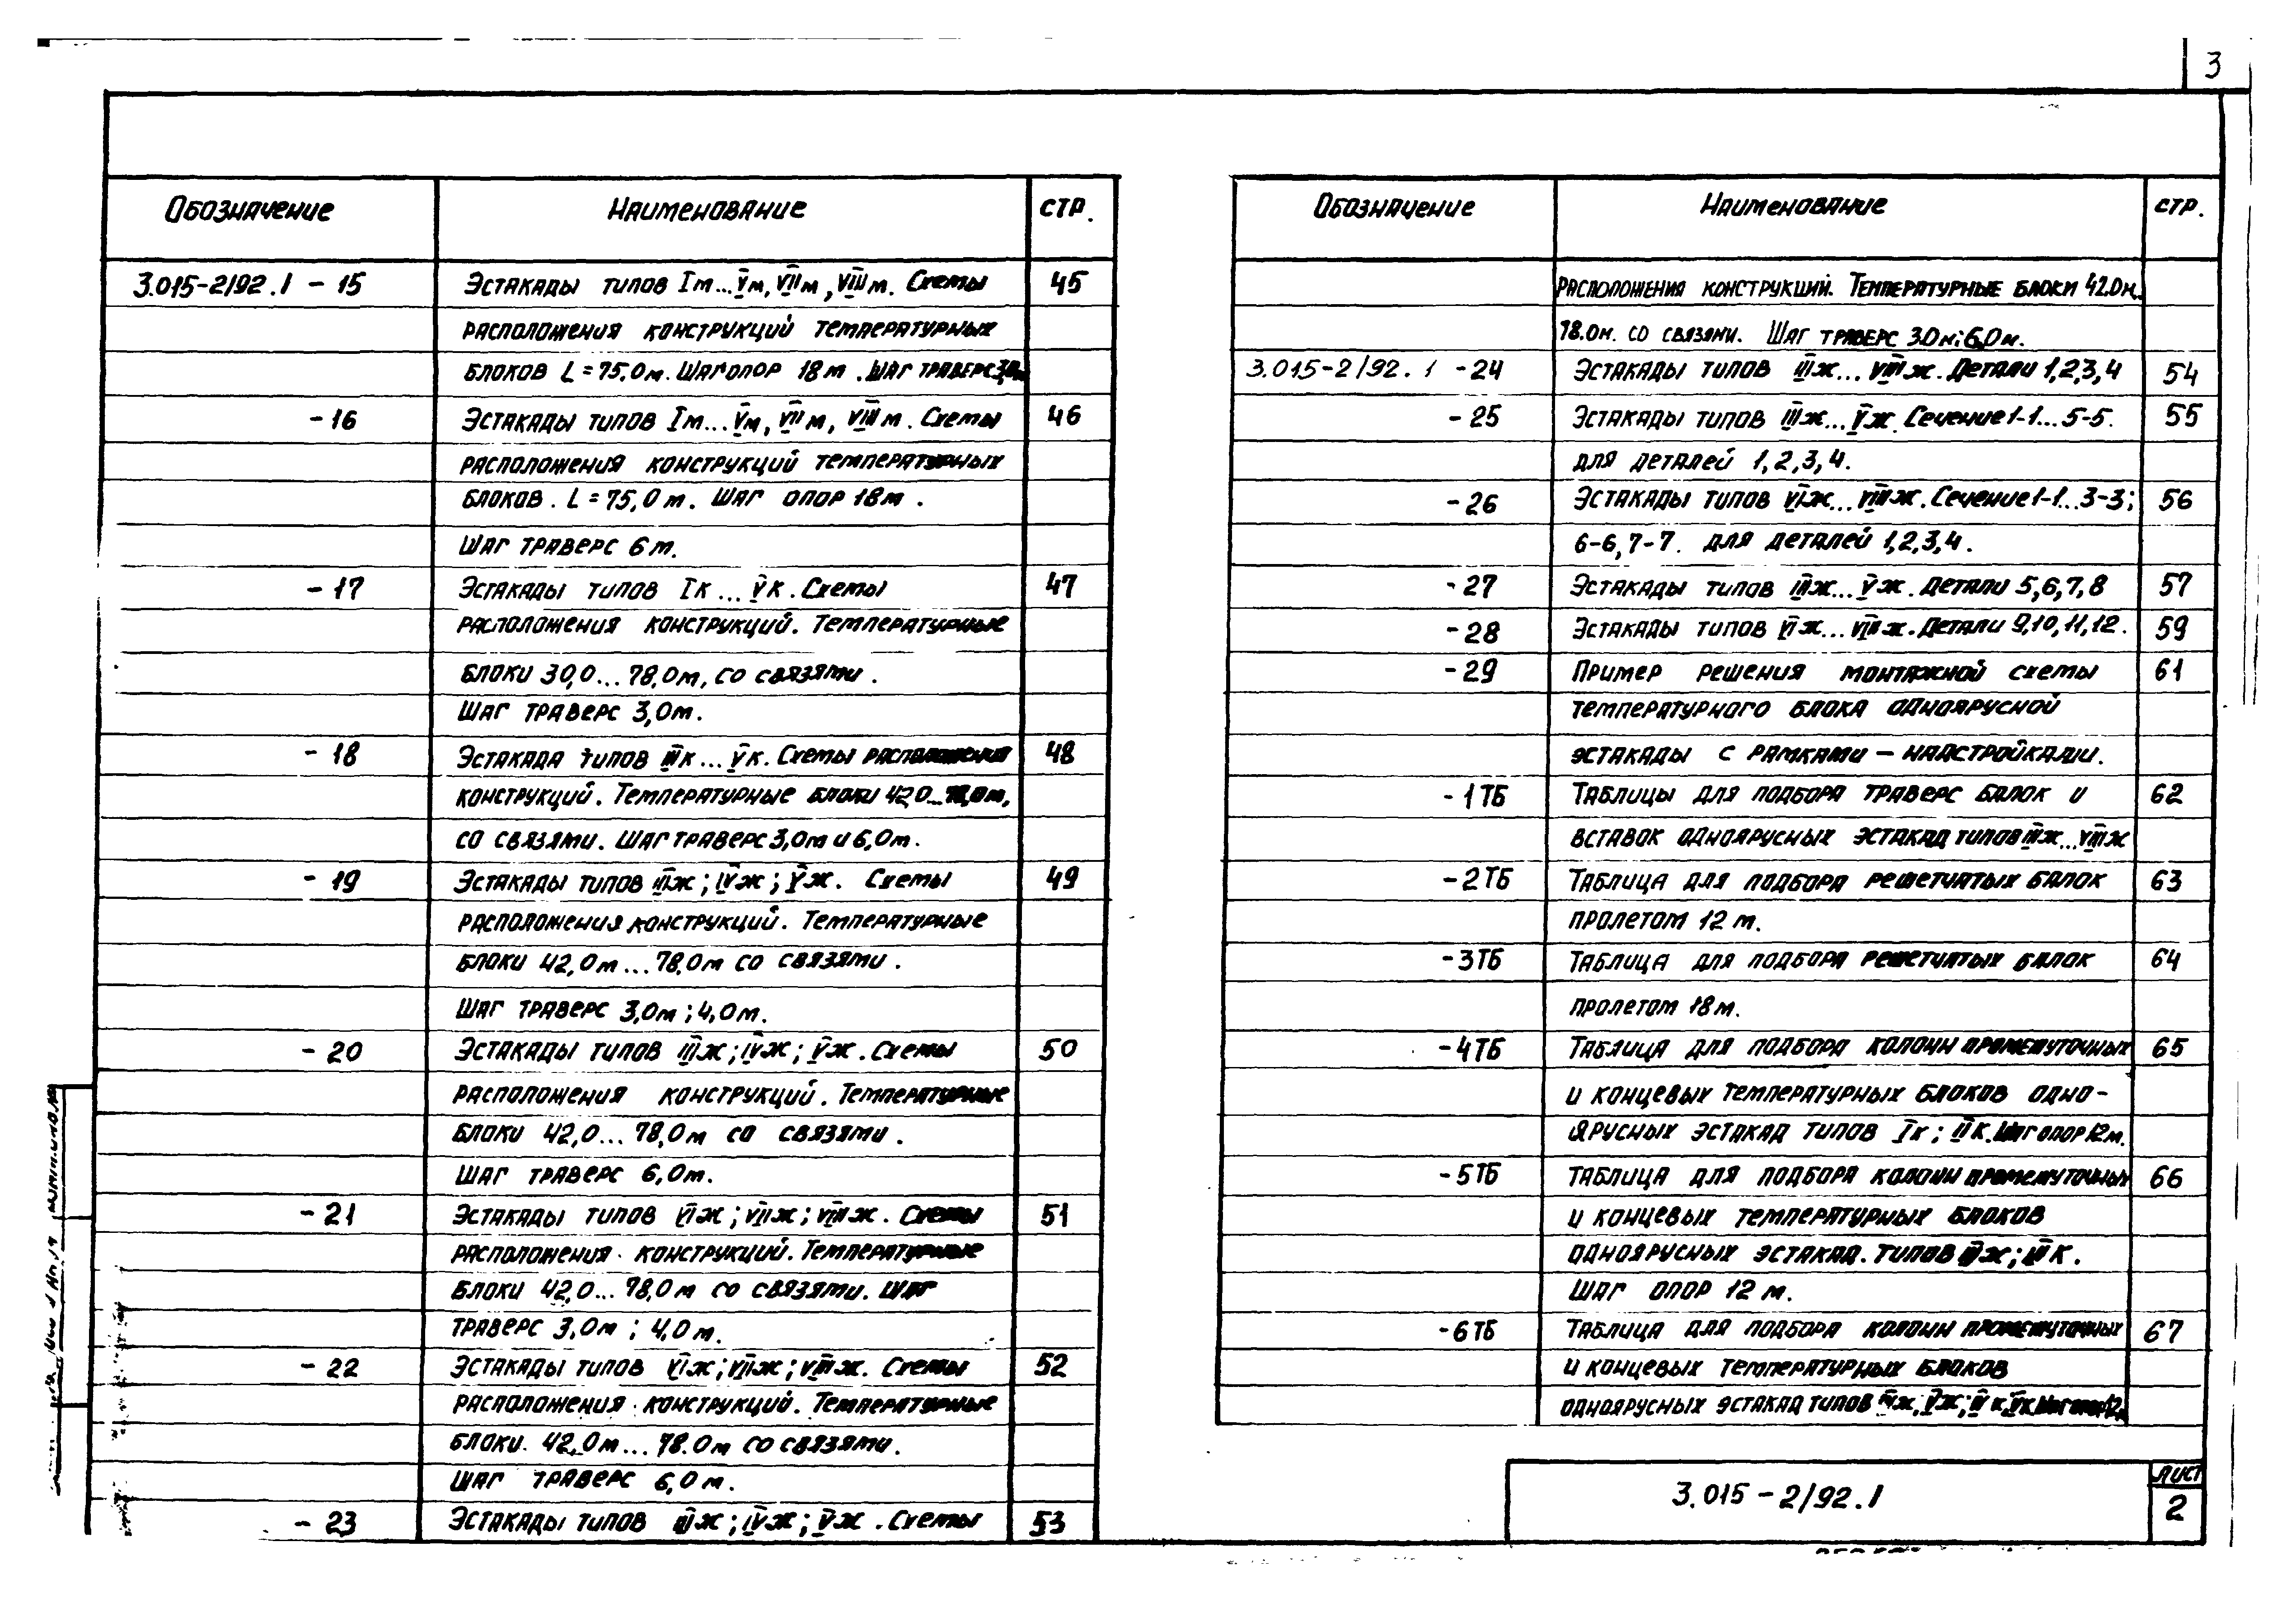 3
Обозначение Наименование стр.
3.015-2/92.1 - 15 Эстакады типов Iм...Vм, VIIм, VIIIм. Схемы 45
расположения конструкций температурных
блоков L=75,0м. Шаг опор 18м. Шаг траверс
- 16 Эстакады типов Iм...Vм, VIIм, VIIIм. Схемы 46
расположения конструкций температурных
блоков. L=75,0м. Шаг опор 18м.
Шаг траверс 6м.
- 17 Эстакады типов Iк...Vк. Схемы 47
расположения конструкций. Температурные
блоки 30,0...78,0м, со связями.
Шаг траверс 3,0м.
- 18 Эстакада типов IIIк...Vк. Схемы расположения 48
конструкций. Температурные блоки 42,0...78,0м,
со связями. Шаг траверс 3,0м и 6,0м.
- 19 Эстакады типов IIIж; IVж; Vж. Схемы 49
расположения конструкций. Температурные
блоки 42,0м...78,0м со связями.
Шаг траверс 3,0м; 4,0м.
- 20 Эстакады типов IIIж; IVж; Vж. Схемы 50
расположения конструкций. Температурные
блоки 42,0...78,0м со связями.
Шаг траверс 6,0м.
- 21 Эстакады типов VIж; VIIж; VIIIж. Схемы 51
расположения конструкций. Температурные
блоки 42,0...78,0м со связями. Шаг
траверс 3,0м; 4,0м.
- 22 Эстакады типов VIж; VIIж; VIIIж. Схемы 52
расположения конструкций. Температурные
блоки. 42,0м...78.0м со связями.
Шаг траверс 6,0м.
- 23 Эстакады типов IIIж; IVж; Vж. Схемы 53
Обозначение Наименование стр.
расположения конструкций. Температурные блоки 42.0м.
78.0м. со связями. Шаг траверс 3.0м; 6,0м.
3.015-2/92.1 -24 Эстакады типов IIIж...VIIIж. Детали 1,2,3,4 54
- 25 Эстакады типов IIIж...Vж. Сечение 1-1...5-5. 55
для деталей 1,2,3,4.
- 26 Эстакады типов VIж...VIIIж. Сечение 1-1...3-3; 56
6-6, 7-7. для деталей 1,2,3,4.
- 27 Эстакады типов IIIж...Vж. Детали 5,6,7,8 57
- 28 Эстакады типов VIж...VIIIж. Детали 9,10,11,12. 59
- 29 Пример решения монтажной схемы 61
температурного блока одноярусной
эстакады с рамками - надстройками.
- 1ТБ Таблицы для подбора траверс балок и 62
вставок одноярусных эстакад типов IIIж...VIIIж
- 2ТБ Таблица для подбора решетчатых балок 63
пролетом 12 м.
- 3ТБ Таблица для подбора решетчатых балок 64
пролетом 18м.
- 4ТБ Таблица для подбора колонн промежуточных 65
и концевых температурных блоков одно-
ярусных эстакад типов Iк; IIк. Шаг опор 12м.
- 5ТБ Таблица для подбора колонн промежуточных 66
и концевых температурных блоков
одноярусных эстакад. типов IIIж; IIIк.
Шаг опор 12 м.
- 6ТБ Таблица для подбора колонн промежуточных 67
и концевых температурных блоков
одноярусных эстакад типов
3.015-2/92.1
Лист
2